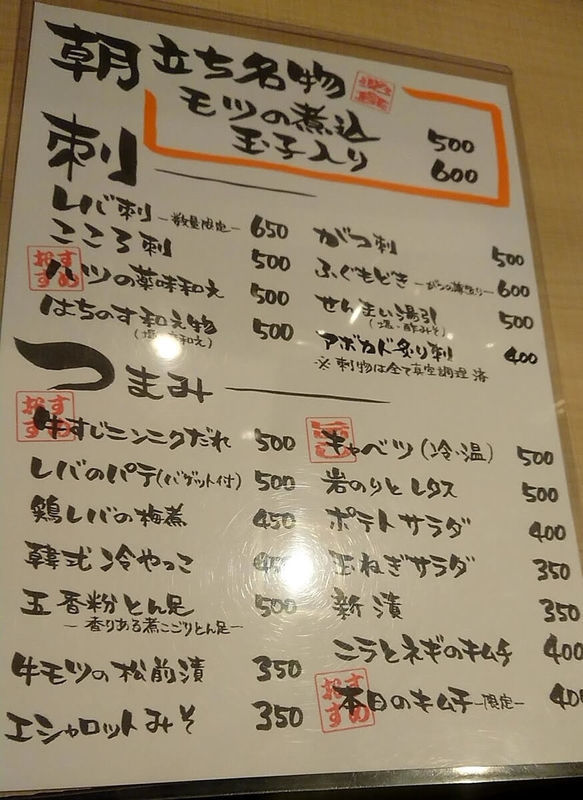 朝立ち名物
モツの煮込 500
玉子入り 600
刺
レバ刺 ー数量限定ー 650
こころ刺 500
おすすめ
ハツの薬味和え 500
はちのす和え物 500
がつ刺 500
ふぐもどき 600
せんまい湯引 500
(塩・酢みそ)
アボカド炙り刺 400
※刺物は全て真空調理済
つまみ
おすすめ
牛すじニンニクだれ 500
レバのパテ(バゲット付) 500
鶏レバの梅煮 450
韓式冷やっこ
五香粉とん足 500
ー香りある煮こごりとん足ー
牛モツの松前漬 350
エシャロットみそ 350
キャベツ(冷・温) 500
岩のりとレタス 500
ポテトサラダ 400
玉ねぎサラダ 350
新漬 350
ニラとネギのキムチ 400
おすすめ
本日のキムチー限定ー 400